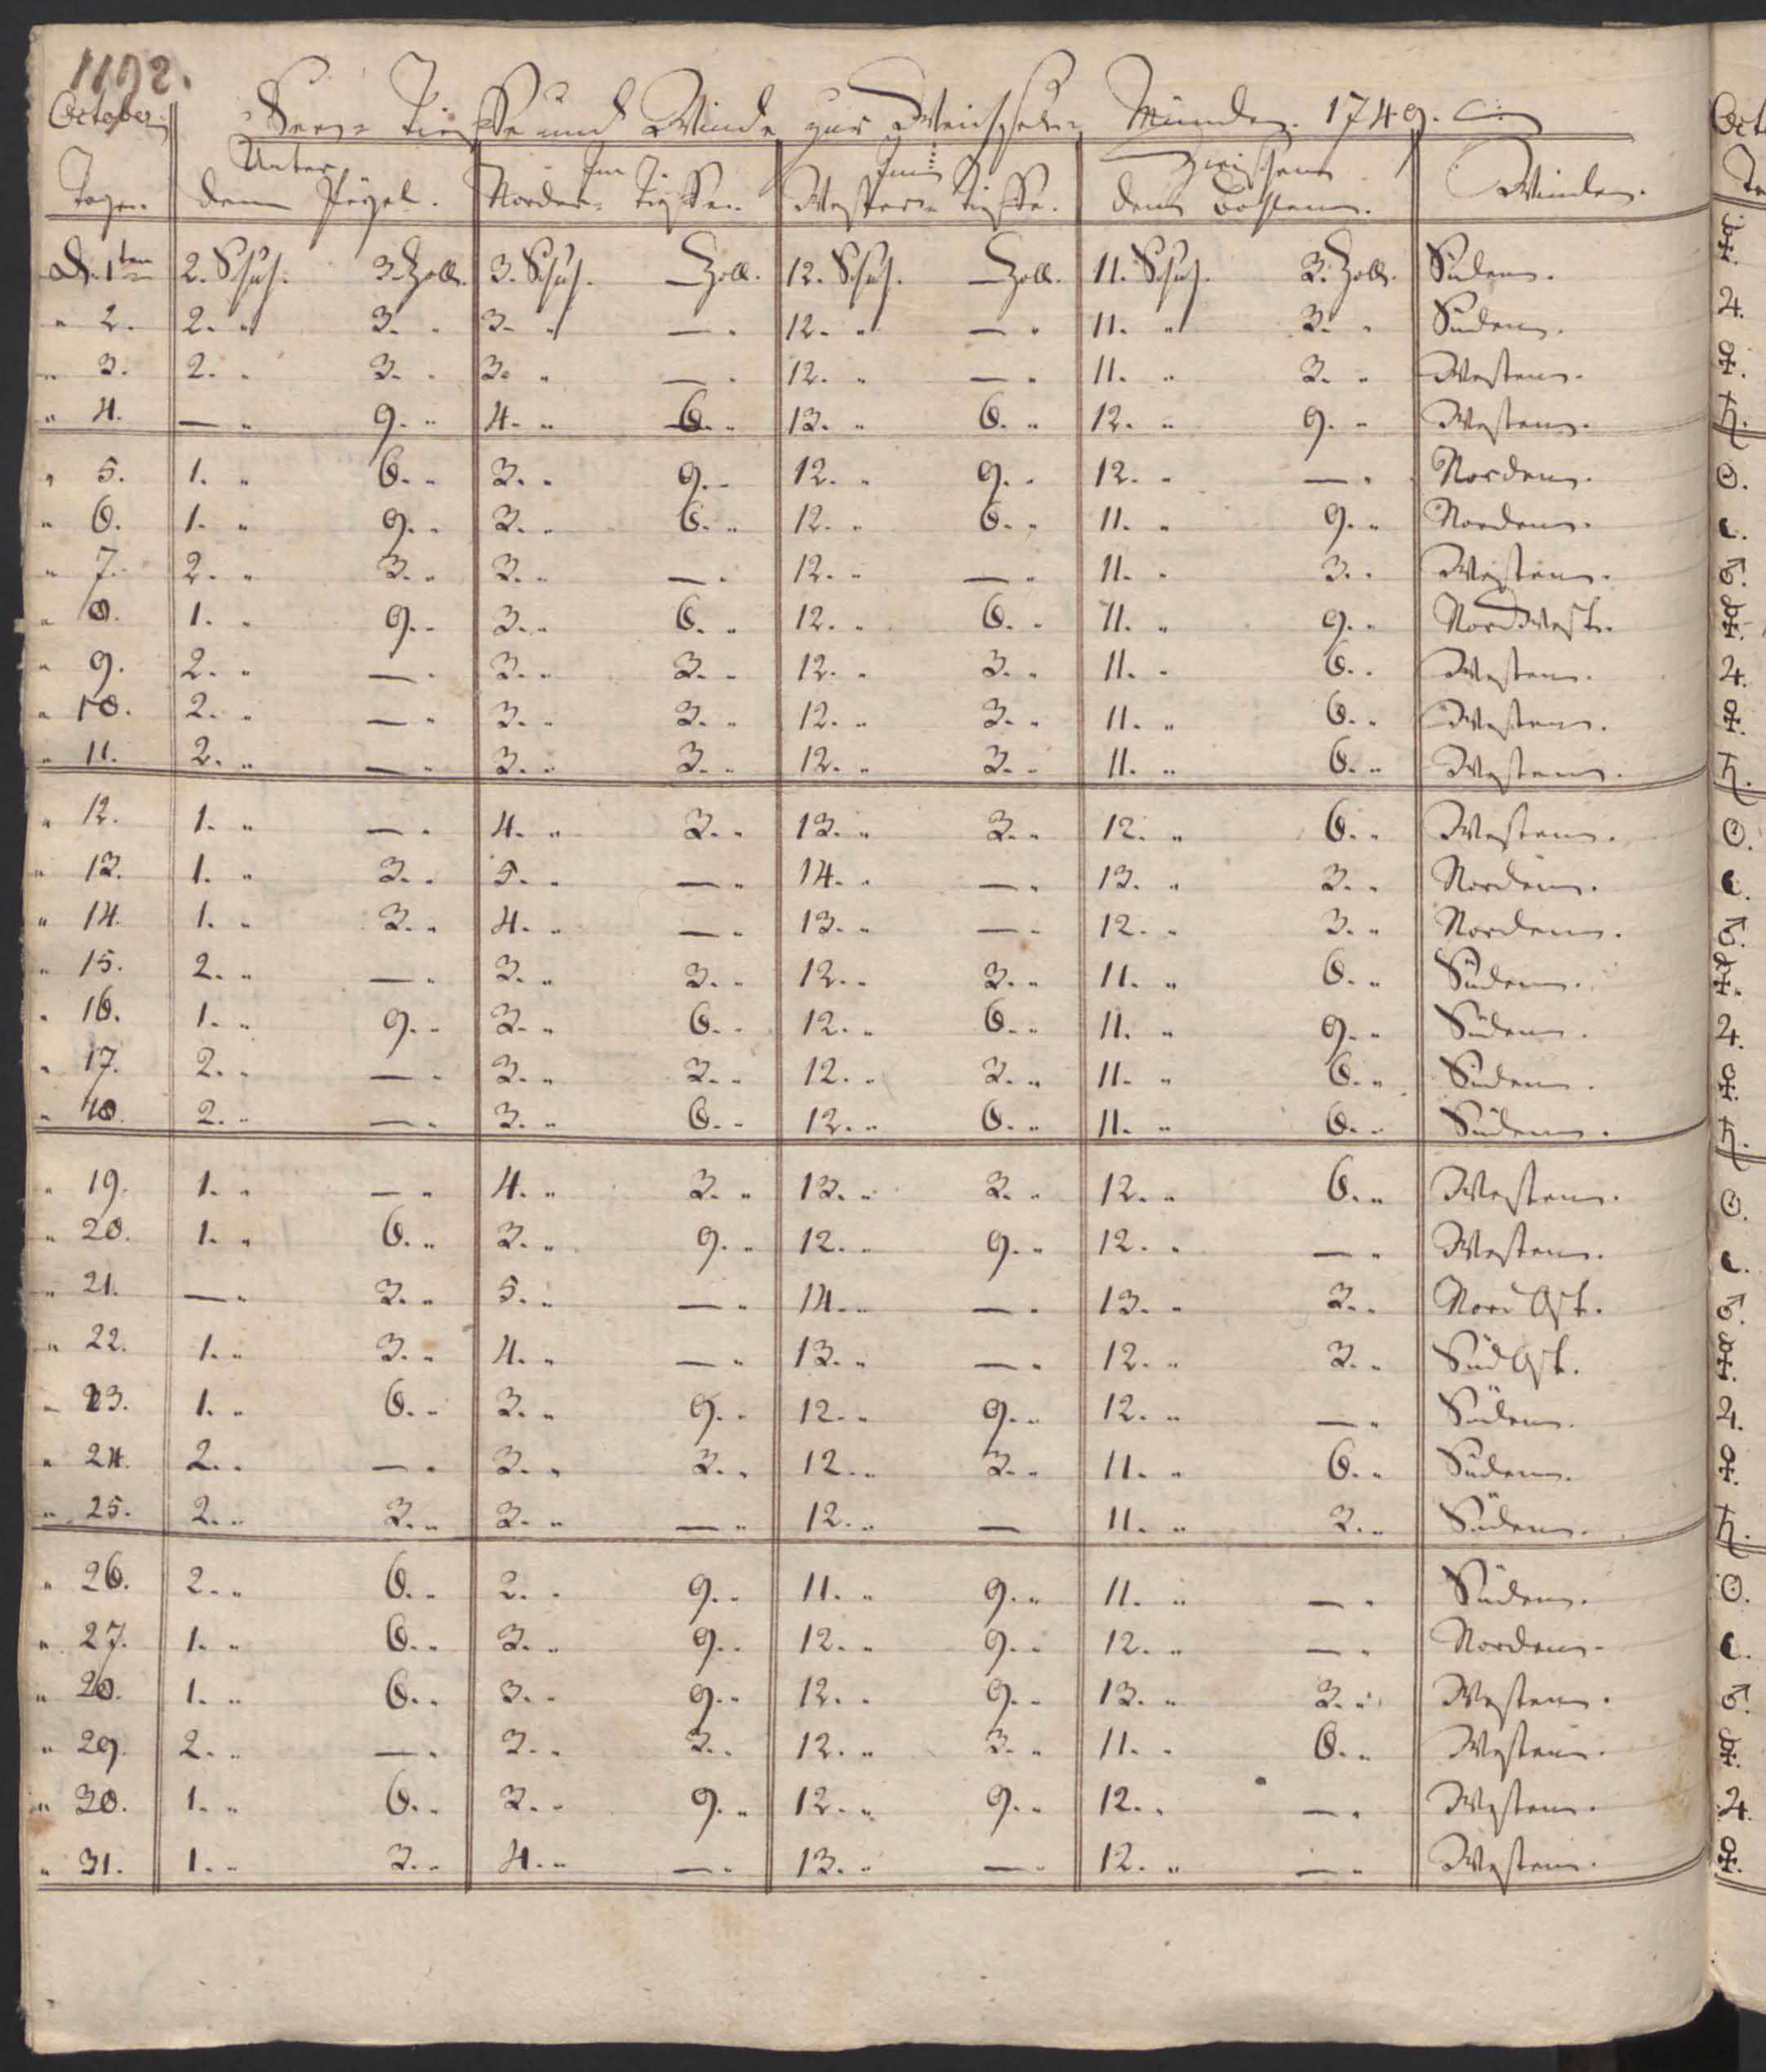 1192.
October
Seeg= Tieffe und Winde zur Weichsel= Münde. 1749.
Tage. Unter dem Pegel. Im Norder= Tieffe. Im Wester= Tieffe. Zwischen den Bohlen. Winde.
D. 1ten 2. Schuh. 3. Zoll. 3. Schuh. — Zoll. 12. Schuh. — Zoll. 11. Schuh. 3. Zoll. Süden.
" 2. 2. " 3. " 3. " — " 12. " — " 11. " 3. " Süden.
" 3. 2. " 3. " 3. " — " 12. " — " 11. " 3. " Westen.
" 4. — " 9. " 4. " 6. " 13. " 6. " 12. " 9. " Westen.
" 5. 1. " 6. " 3. " 9. " 12. " 9. " 12. " — " Norden.
" 6. 1. " 9. " 3. " 6. " 12. " 6. " 11. " 9. " Norden.
" 7. 2. " 3. " 3. " — " 12. " — " 11. " 3. " Westen.
" 8. 1. " 9. " 3. " 6. " 12. " 6. " 11. " 9. " NordWest.
" 9. 2. " — " 3. " 3. " 12. " 3. " 11. " 6. " Westen.
" 10. 2. " — " 3. " 3. " 12. " 3. " 11. " 6. " Westen.
" 11. 2. " — " 3. " 3. " 12. " 3. " 11. " 6. " Westen.
" 12. 1. " — " 4. " 3. " 13. " 3. " 12. " 6. " Westen.
" 13. 1. " 3. " 5. " — " 14. " — " 13. " 3. " Norden.
" 14. 1. " 3. " 4. " — " 13. " — " 12. " 3. " Norden.
" 15. 2. " — " 3. " 3. " 12. " 3. " 11. " 6. " Süden.
" 16. 1. " 9. " 3. " 6. " 12. " 6. " 11. " 9. " Süden.
" 17. 2. " — " 3. " 3. " 12. " 3. " 11. " 6. " Süden.
" 18. 2. " — " 3. " 6. " 12. " 6. " 11. " 6. " Süden.
" 19. 1. " — " 4. " 3. " 13. " 3. " 12. " 6. " Westen.
" 20. 1. " 6. " 3. " 9. " 12. " 9. " 12. " — " Westen.
" 21. — " 3. " 5. " — " 14. " — " 13. " 3. " Nord Ost.
" 22. 1. " 3. " 4. " — " 13. " — " 12. " 3. " Süd Ost.
" 23. 1. " 6. " 3. " 9. " 12. " 9. " 12. " — " Süden.
" 24. 2. " — " 3. " 3. " 12. " 3. " 11. " 6. " Süden.
" 25. 2. " 3. " 3. " — " 12. " — 11. " 3. " Süden.
" 26. 2. " 6. " 2. " 9. " 11. " 9. " 11. " — " Süden.
" 27. 1. " 6. " 3. " 9. " 12. " 9. " 12. " — " Norden.
" 28. 1. " 6. " 3. " 9. " 12. " 9. " 13. " 3. " Westen.
" 29. 2. " — " 3. " 3. " 12. " 3. " 11. " 6. " Westen.
" 30. 1. " 6. " 3. " 9. " 12. " 9. " 12. " — " Westen.
" 31. 1. " 3. " 4. " — " 13. " — " 12. " — " Westen.